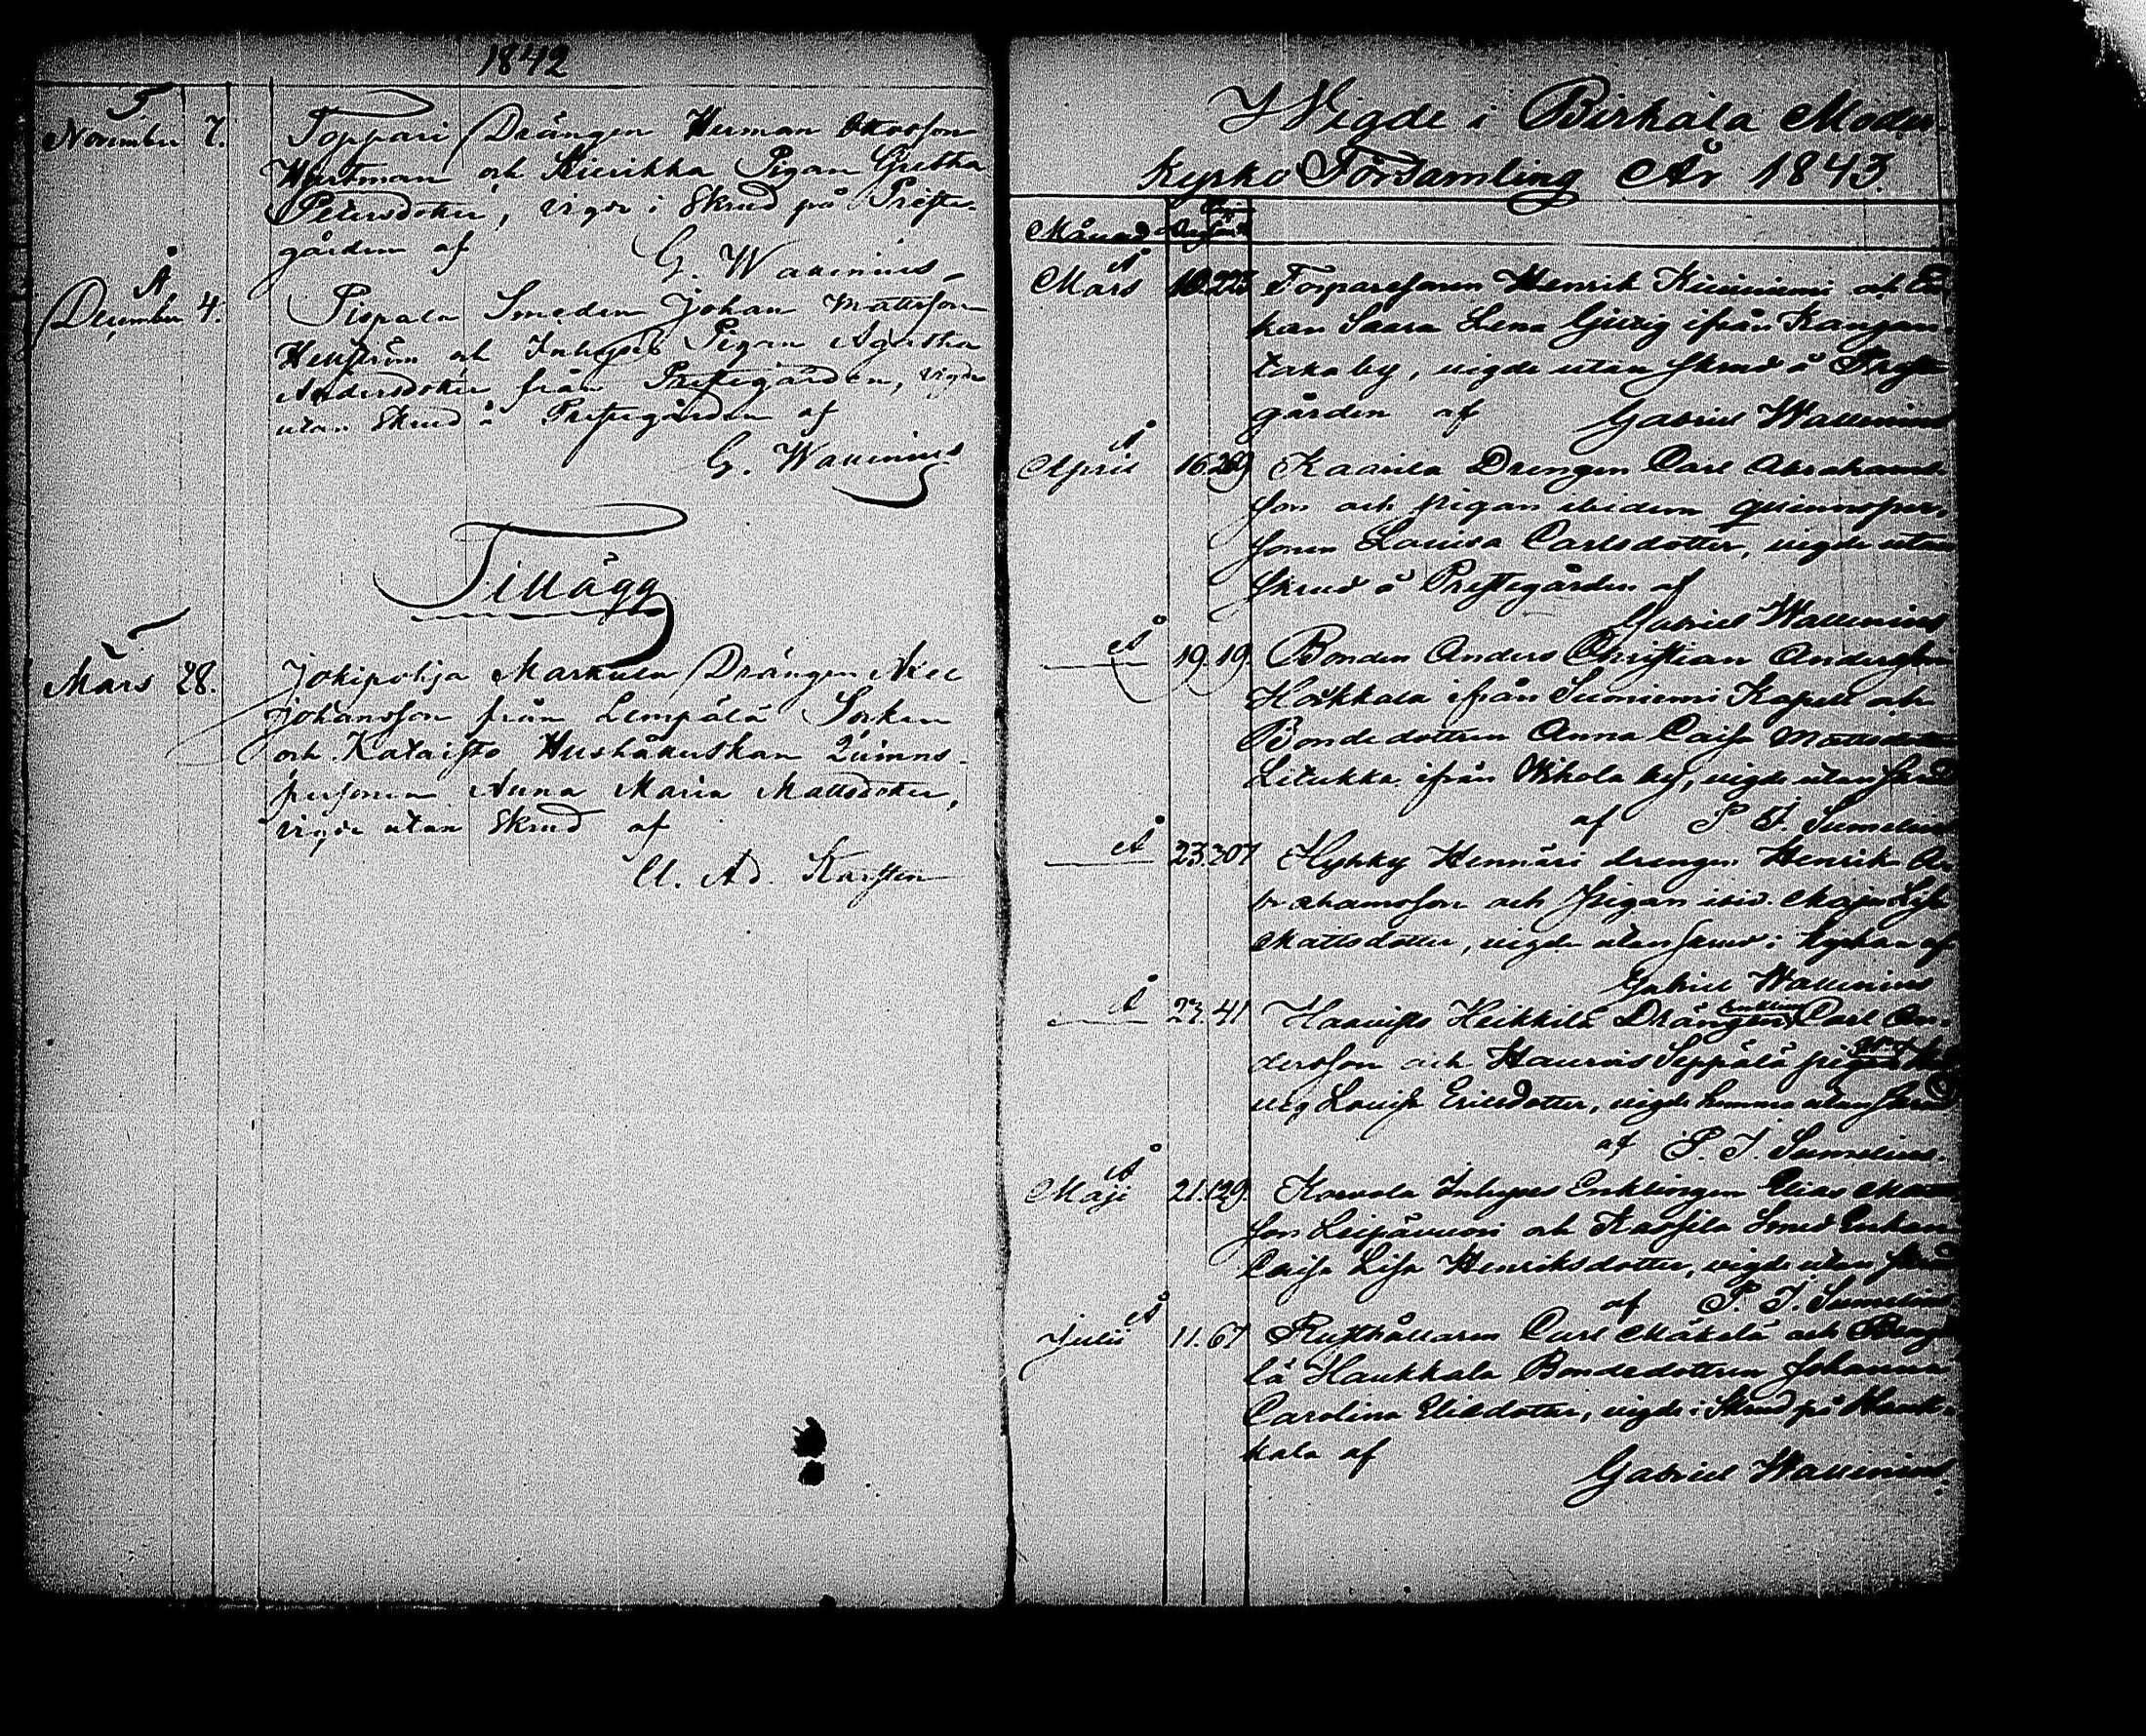 1842
November 7. Toppari Drängen Herman Ottosson
Wertman och Kierikka Pigan Gretha
Petersdotter, vigde i Skrud på Preste-
gården af G. Wallenius
December 4. Pispala Smeden Johan Mattsson
Hellström och Inhyses Pigan Agatha
Andersdotter från Prestegården, vigde
utan Skrud å Prestegården af
G. Wallenius
Tillägg
Mars 28. Jokipohja Markula Drängen Axel
Johansson från Lempälä Socken
och Kataisto Hushållerskan Quinns-
personen Anna Maria Mattsdotter,
vigde utan Skrud af
C. Ad. Karsten
Wigde i Birkala Moder
Kyrko Församling År 1843.
Månad
Mars Torparesonen Henrik och
Saara Lena ifrån Kangan-
taka by, vigde utan skrud å Preste
gården af Gabriel Wallenius
April 16. 269 Kaarila Drengen Carl Abrahams-
son och pigan ibidem quinnsper-
sonen Lovisa Carlsdotter, vigde utan
skrud å Prestegården af
Gabriel Wallenius
19. 19. Bonden Anders Christian Andersson
ifrån Suoniemi Kapell och
Bondedottren Anna Caisa Mattsdotter
Litukka ifrån by, vigde utan skrud
af P. J. Sumelius
23. 207 Hyhky Hennäri drengen Henrik A-
brahamsson och Pigan ibid. Maja
Mattsdotter, vigde utan skrud i kyrkan af
Gabriel Wallenius
23. 41 Haavisto Heikkilä Drängen Enkling Carl An-
dersson och Seppälä pigan
Lovisa Ericsdotter, vigde hemma utan skrud
af P. J. Sumelius.
Maji 21. 129. Korvola Inhyses Enklingen Elias
son Leipävuori och Kassila Smed Enkan
Caisa Lisa Henriksdotter, vigde utan skrud
af P. J. Sumelius
Julii 11. 67 Rusthållaren Carl Mäkelä och
lä Haukkala Bondedottren Johanna
Carolina Eliedotter, vigde i Skrud på Hauk-
kala af
Gabriel Wallenius